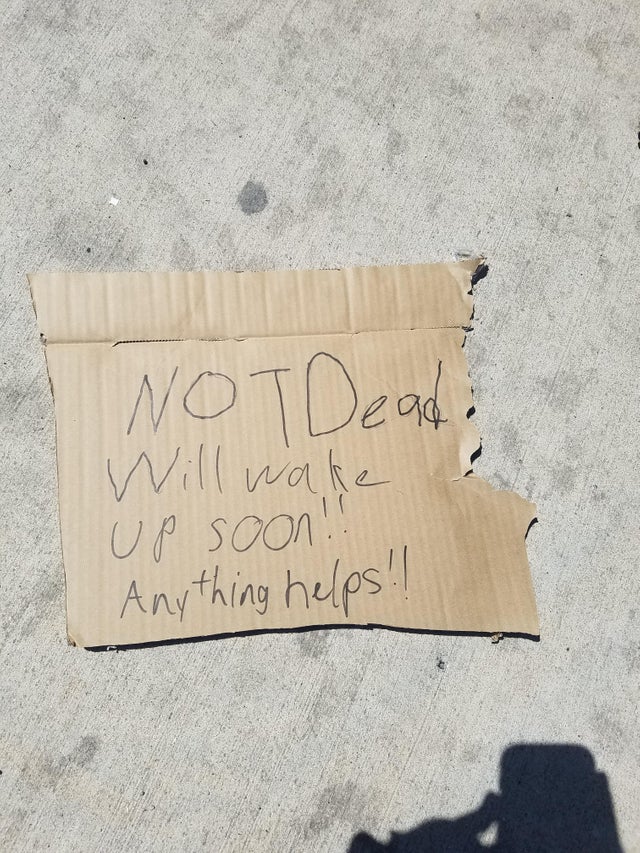 NOT Dead
Will wake
UP soon!!
Anything helps!!